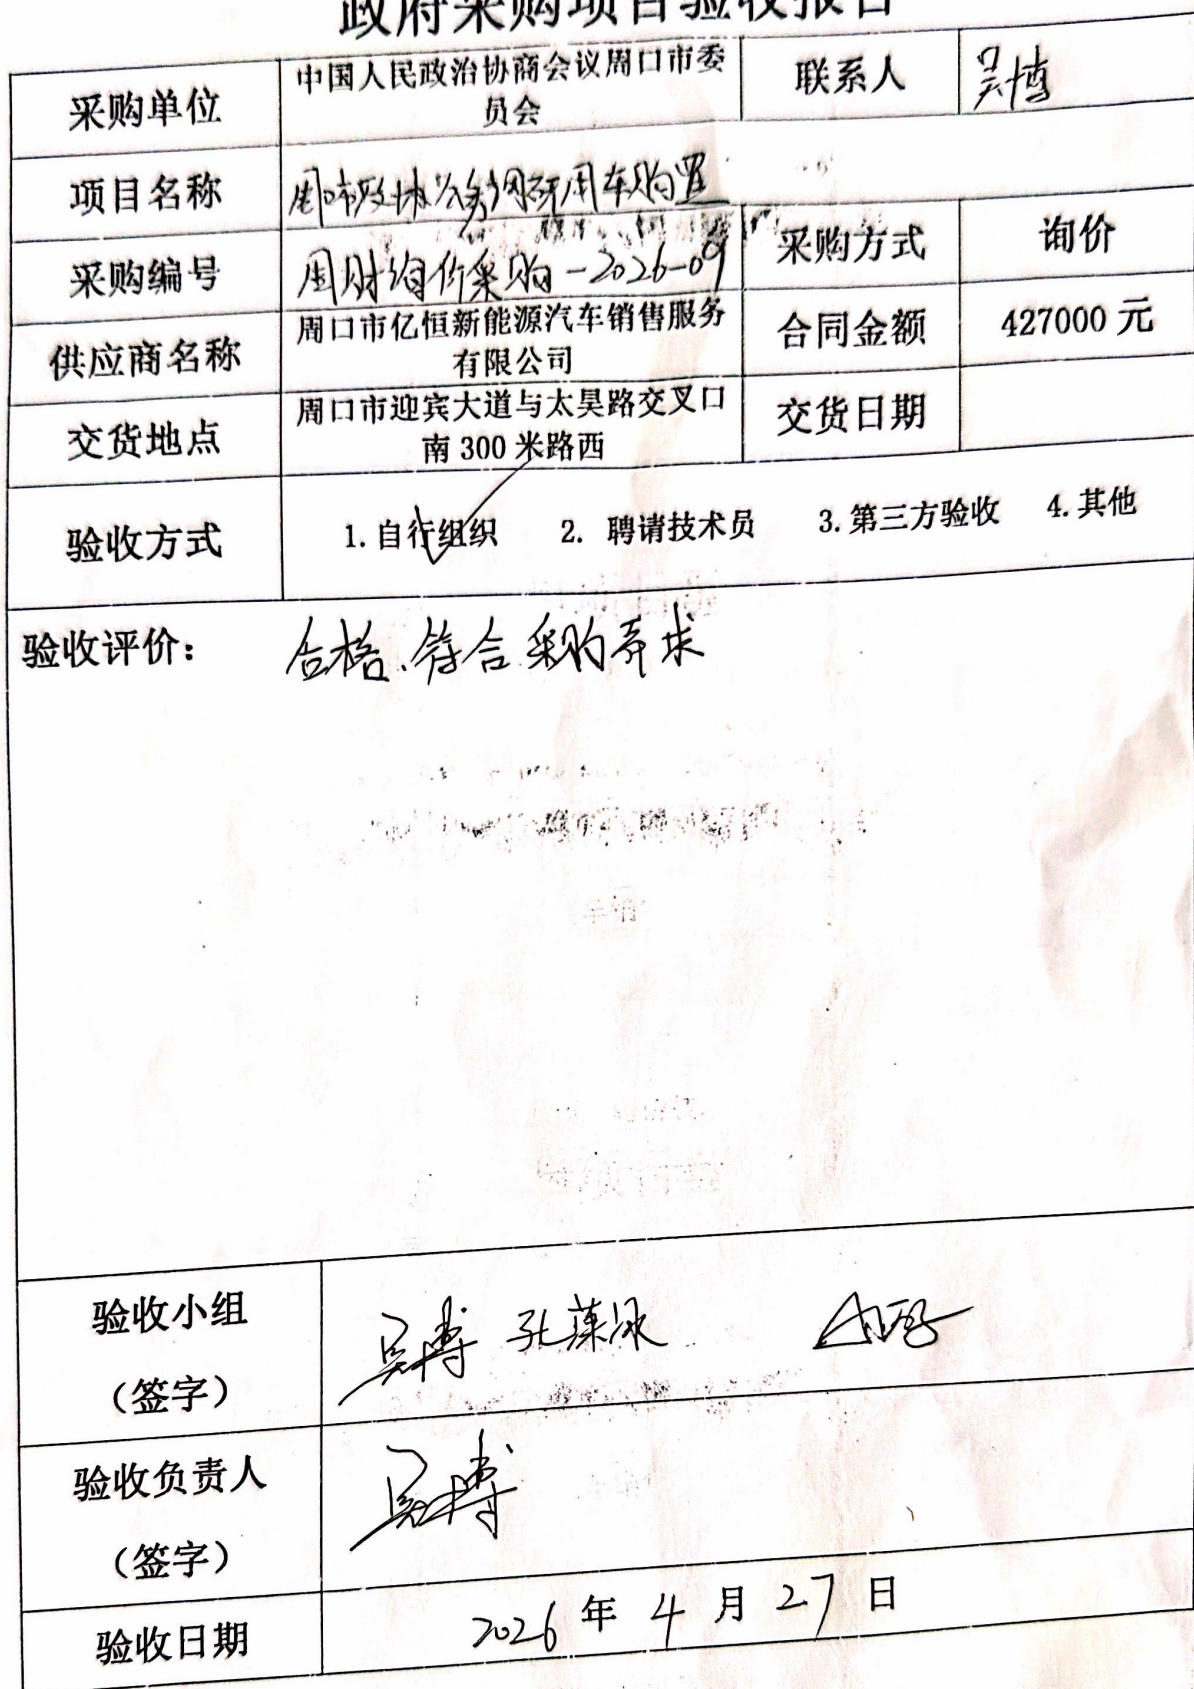 政府采购项目验收报告
采购单位
中国人民政治协商会议周口市委
员会
联系人
吴博
项目名称
周口市政协公务调研用车购置
采购编号
周财询价采购-2026-09
采购方式
询价
供应商名称
周口市亿恒新能源汽车销售服务
有限公司
合同金额
427000 元
交货地点
周口市迎宾大道与太昊路交叉口
南 300 米路西
交货日期
验收方式
1. 自行组织 2. 聘请技术员 3. 第三方验收 4. 其他
验收评价： 合格、符合采购需求
验收小组
（签字）
吴博 孔藻冰
验收负责人
（签字）
吴博
验收日期
2026 年 4 月 27 日